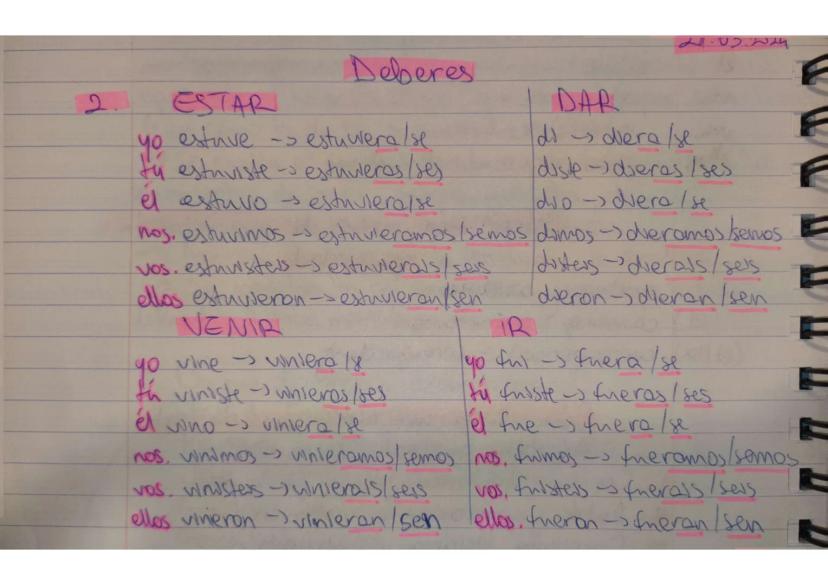 Deberes
2. ESTAR
yo estuve -> estuviera/se
tú estuviste -> estuvieras/ses
él estuvo -> estuviera/se
nos. estuvimos -> estuvieramos/semos
vos. estuvisteis -> estuvierais/seis
ellos estuvieron -> estuvieran/sen
DAR
di -> diera/se
diste -> dieras/ses
dio -> diera/se
dimos -> dieramos/semos
disteis -> dierais/seis
dieron -> dieran/sen
VENIR
yo vine -> viniera/se
tú viniste -> vinieras/ses
él vino -> viniera/se
nos. vinimos -> vinieramos/semos
vos. vinisteis -> vinierais/seis
ellos vinieron -> vinieran/sen
IR
yo fui -> fuera/se
tú fuiste -> fueras/ses
él fue -> fuera/se
nos. fuimos -> fueramos/semos
vos. fuisteis -> fuerais/seis
ellos. fueron -> fueran/sen